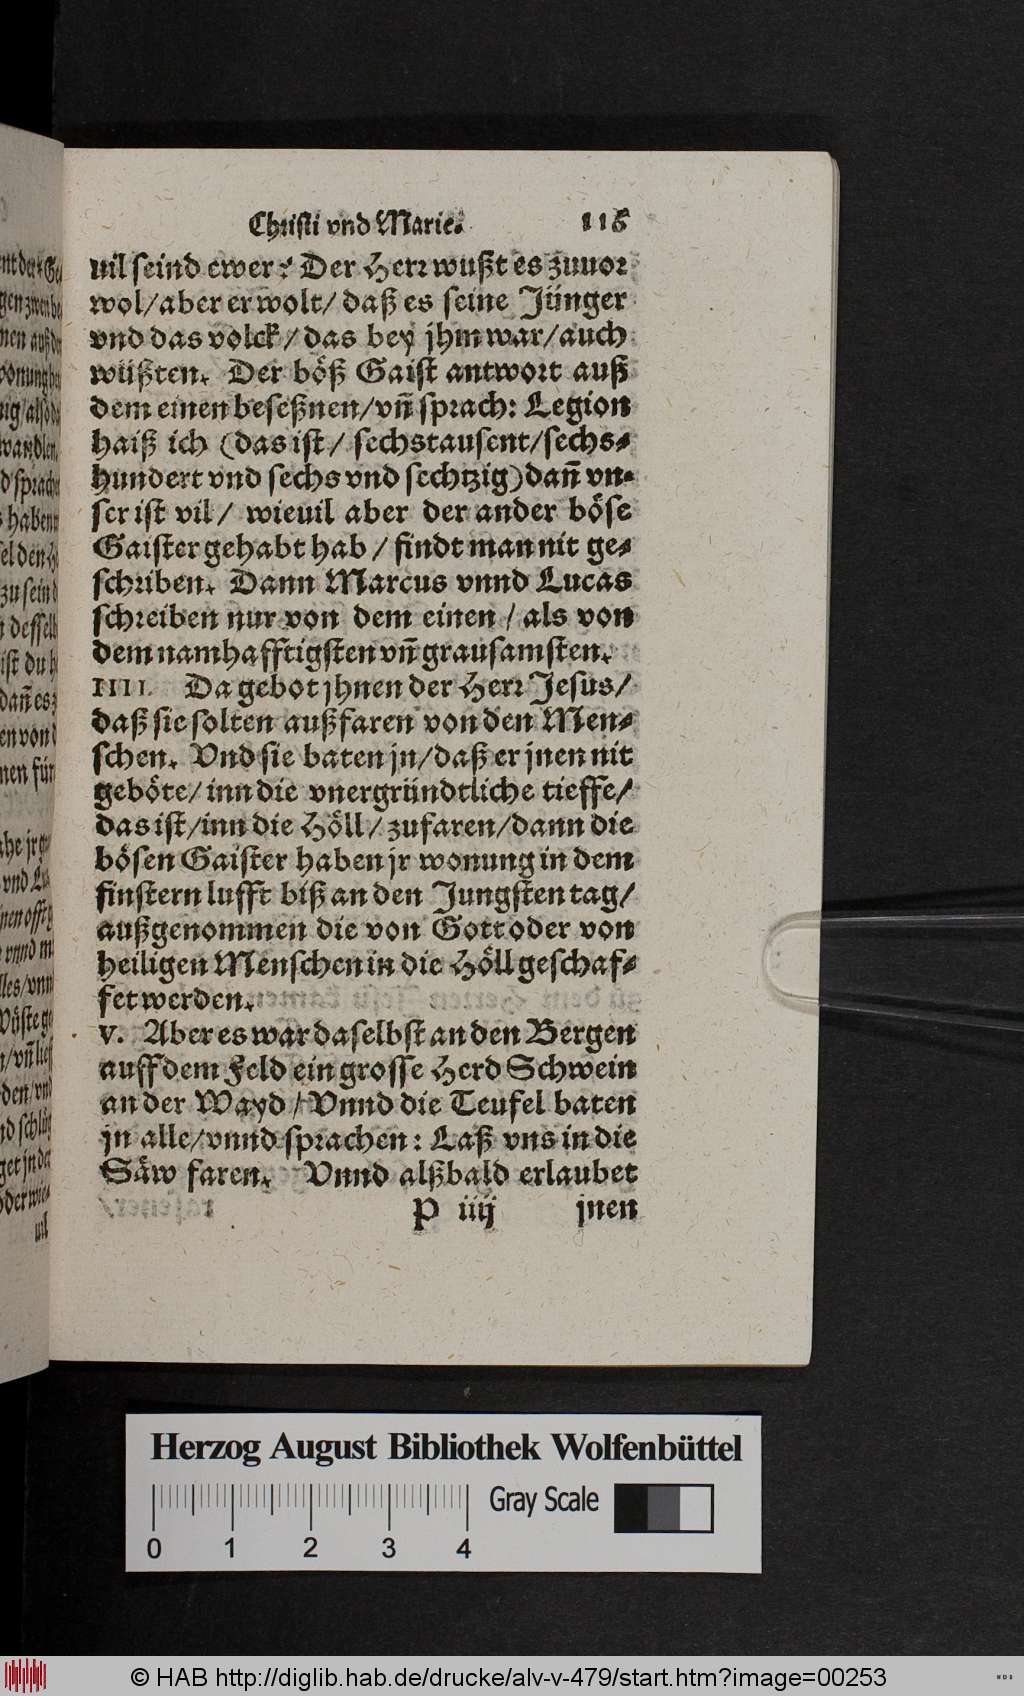 Christi vnd Marie. 116
uil seind ewer? Der Herr wußt es zuuor
wol/aber er wolt/ daß es seine Jünger
vnd das volck/ das bey jhm war/auch
wüßten. Der böß Gaist antwort auß
dem einen beseßnen/vñ sprach: Legion
haiß ich (das ist/ sechstausent/sechs⸗
hundert vnd sechs vnd sechtzig) dañ vn⸗
ser ist vil/ wieuil aber der ander böse
Gaister gehabt hab/ findt man nit ge⸗
schriben. Dann Marcus vnnd Lucas
schreiben nur von dem einen/ als von
dem namhafftigsten vñ grausamsten.
IIII. Da gebot jhnen der Herr Jesus/
daß sie solten außfaren von den Men⸗
schen. Vnd sie baten jn/daß er jnen nit
geböte/ inn die vnergründtliche tieffe/
das ist/inn die Höll/ zufaren/dann die
bösen Gaister haben jr wonung in dem
finstern lufft biß an den Jungsten tag/
außgenommen die von Gott oder von
heiligen Menschen in die Höll geschaf⸗
fet werden.
V. Aber es war daselbst an den Bergen
auff dem Feld ein grosse Herd Schwein
an der Wayd/ Vnnd die Teufel baten
jn alle/vnnd sprachen: Laß vns in die
Säw faren. Vnnd alßbald erlaubet
P iiij jnen
Herzog August Bibliothek Wolfenbüttel
Gray Scale
0 1 2 3 4
© HAB http://diglib.hab.de/drucke/alv-v-479/start.htm?image=00253